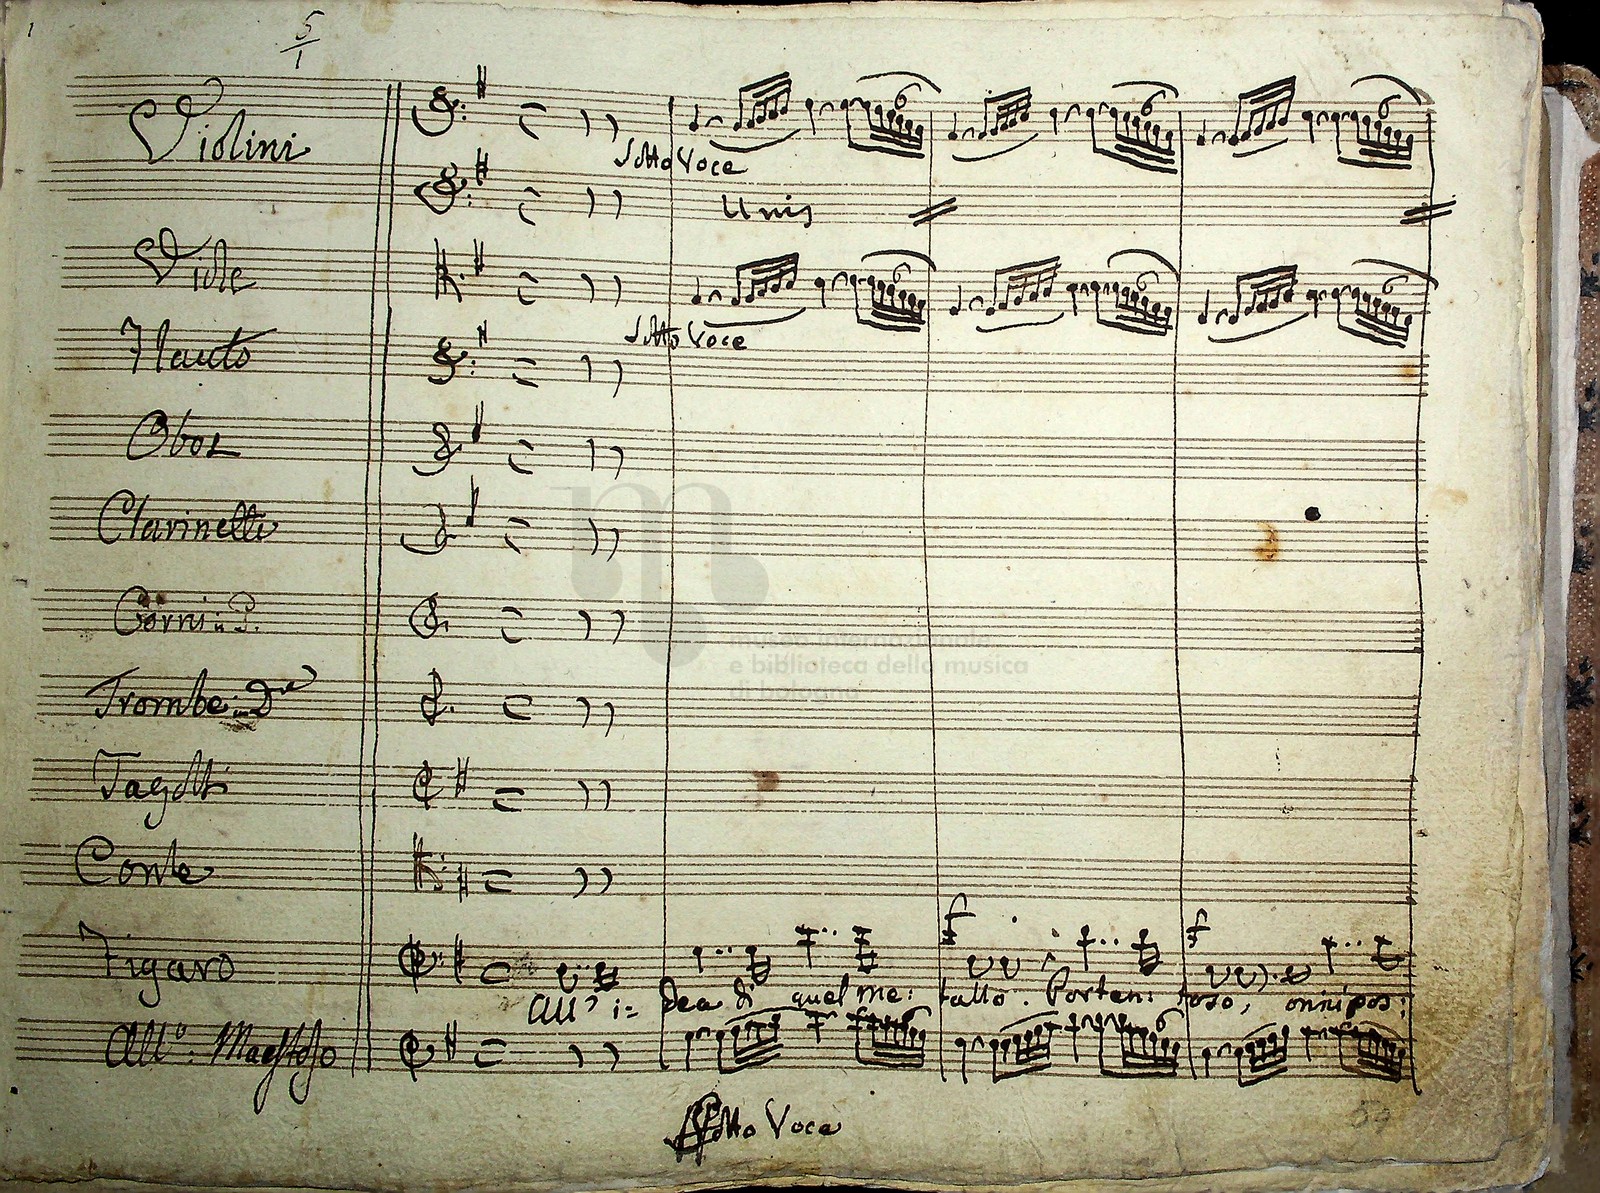 1
5
1
Violini
Sotto Voce
Unis
Viole
Sotto Voce
Flauto
Oboe
Clarinetti
Corni in G.
museo internazionale
e biblioteca della musica
di bologna
Trombe in D
Fagotti
Conte
Figaro
All' i= dea di quel me: tallo. Porten: toso, onnipos:
All.º Maestoso
Sotto Voce
50